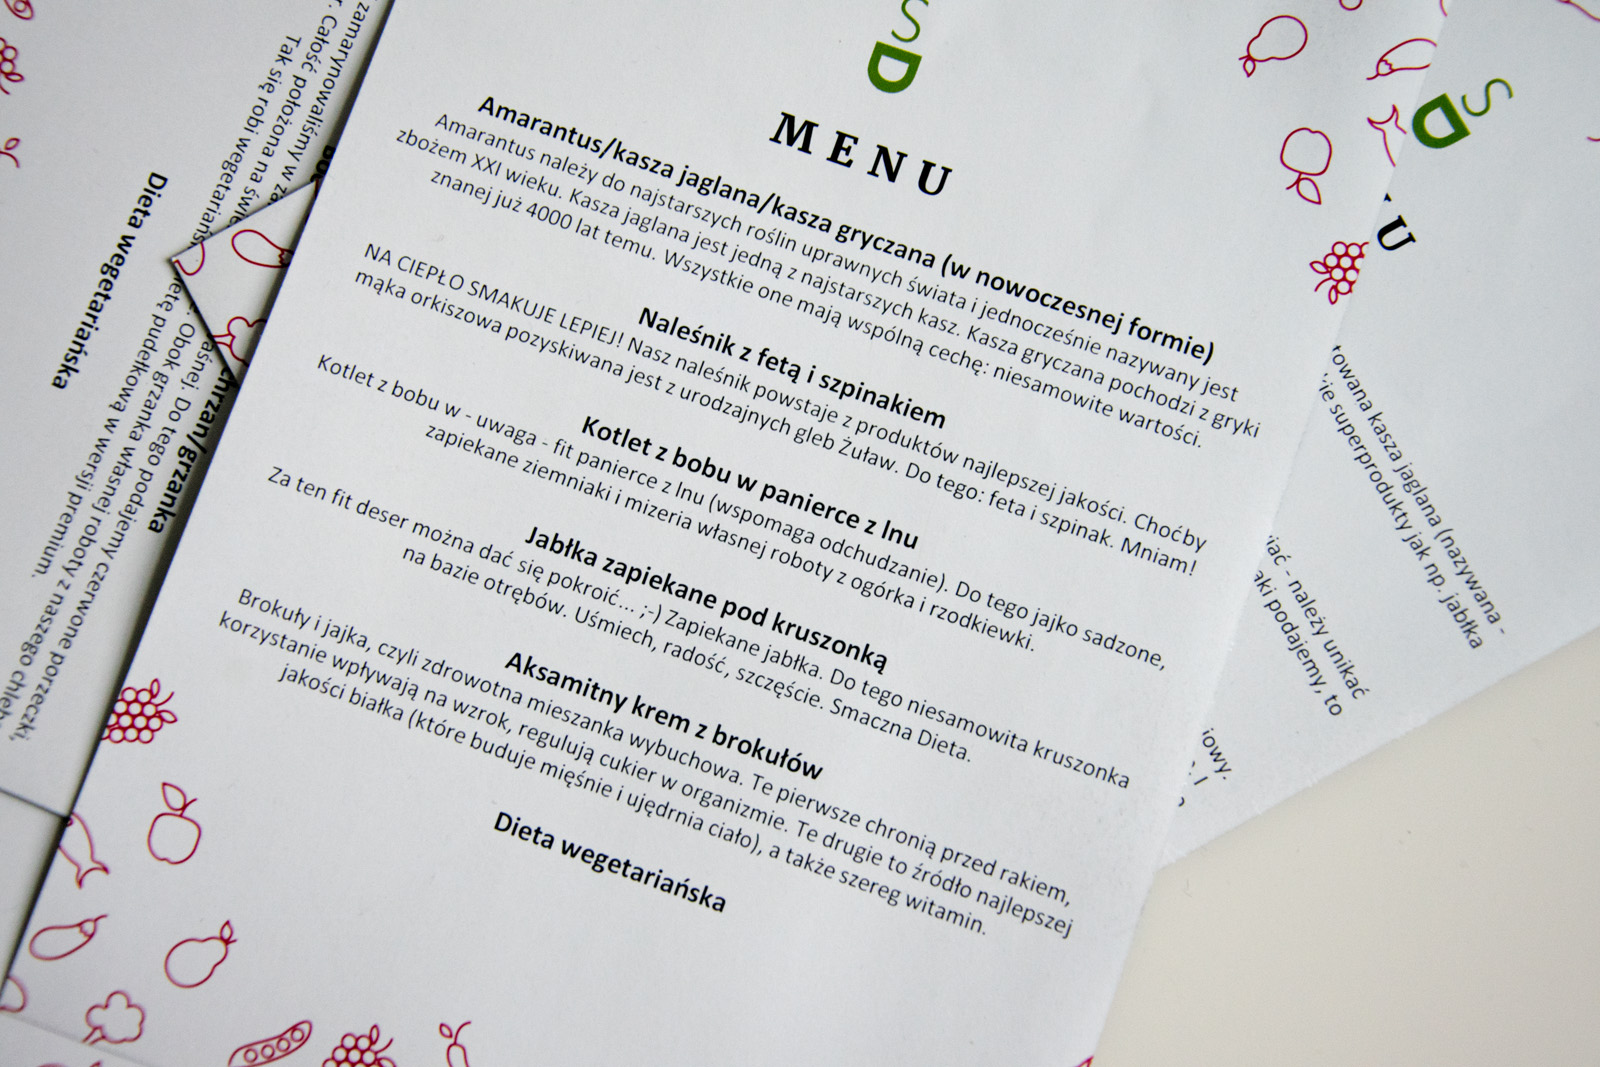 SD
MENU
Amarantus/kasza jaglana/kasza gryczana (w nowoczesnej formie)
Amarantus należy do najstarszych roślin uprawnych świata i jednocześnie nazywany jest
zbożem XXI wieku. Kasza jaglana jest jedną z najstarszych kasz. Kasza gryczana pochodzi z gryki
znanej już 4000 lat temu. Wszystkie one mają wspólną cechę: niesamowite wartości.
Naleśnik z fetą i szpinakiem
NA CIEPŁO SMAKUJE LEPIEJ! Nasz naleśnik powstaje z produktów najlepszej jakości. Choćby
mąka orkiszowa pozyskiwana jest z urodzajnych gleb Żuław. Do tego: feta i szpinak. Mniam!
Kotlet z bobu w panierce z lnu
Kotlet z bobu w - uwaga - fit panierce z lnu (wspomaga odchudzanie). Do tego jajko sadzone,
zapiekane ziemniaki i mizeria własnej roboty z ogórka i rzodkiewki.
Jabłka zapiekane pod kruszonką
Za ten fit deser można dać się pokroić... ;-) Zapiekane jabłka. Do tego niesamowita kruszonka
na bazie otrębów. Uśmiech, radość, szczęście. Smaczna Dieta.
Aksamitny krem z brokułów
Brokuły i jajka, czyli zdrowotna mieszanka wybuchowa. Te pierwsze chronią przed rakiem,
korzystanie wpływają na wzrok, regulują cukier w organizmie. Te drugie to źródło najlepszej
jakości białka (które buduje mięśnie i ujędrnia ciało), a także szereg witamin.
Dieta wegetariańska
zamarynowaliśmy w
Całość położona na
Tak się robi
chrzan/grzanka
Do tego podajemy czerwone porzeczki,
Obok grzanka własnej roboty z naszego
pudełkową w wersji premium.
Dieta wegetariańska
SD
U
kasza jaglana (nazywana -
superprodukty jak np. jabłka
- należy unikać
podajemy, to